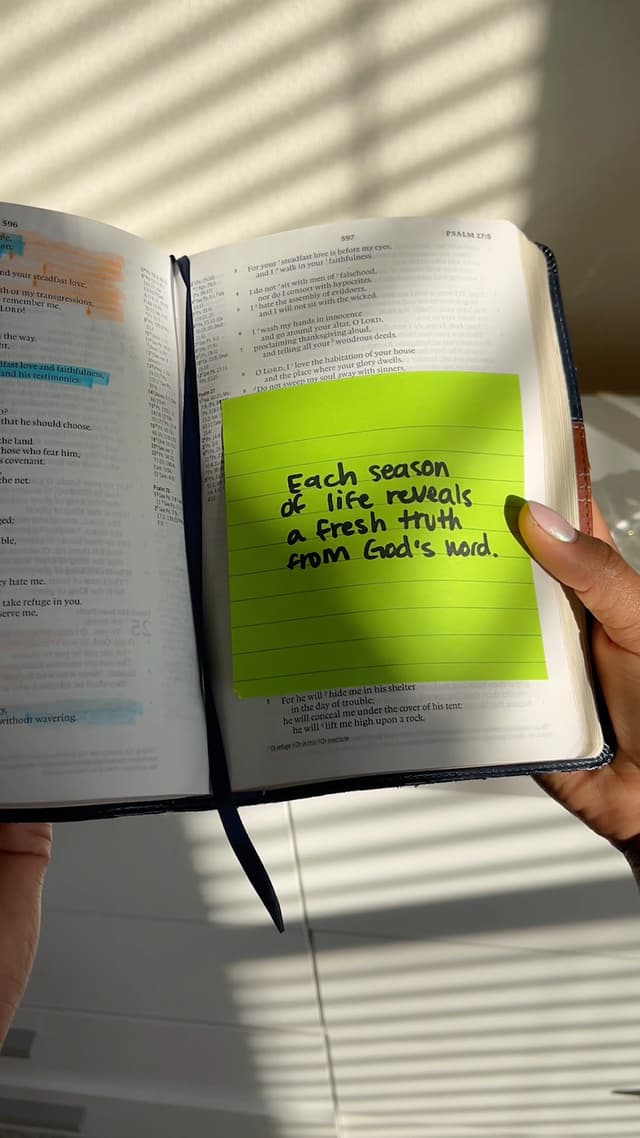 596
nd your steadfast love,
th or my transgressions;
remember me,
LORD!
the way.
ht,
dfast love and faithfulness,
and his testimonies.
o?
that he should choose.
the land.
hose who fear him,
s covenant.
the net.
ged;
ble,
ey hate me.
take refuge in you.
serve me,
y,
without wavering.
597
PSALM 27:5
3 For your steadfast love is before my eyes,
and I walk in your faithfulness.
4 I do not sit with men of falsehood,
nor do I consort with hypocrites.
5 I hate the assembly of evildoers,
and I will not sit with the wicked.
6 I wash my hands in innocence
and go around your altar, O LORD,
7 proclaiming thanksgiving aloud,
and telling all your wondrous deeds.
8 O LORD, I love the habitation of your house
and the place where your glory dwells.
9 Do not sweep my soul away with sinners,
Each season
of life reveals
a fresh truth
from God's word.
5 For he will hide me in his shelter
in the day of trouble;
he will conceal me under the cover of his tent;
he will lift me high upon a rock.